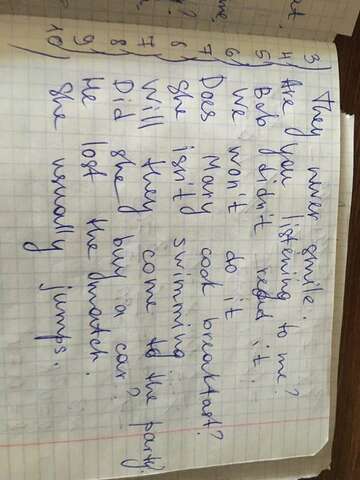 me.
3) They never smile.
4) Are you listening to me?
5) Bob didn't read it.
6) We won't do it
7) Does Mary cook breakfast?
6) She isn't swimming
7) Will they come to the party.
8) Did she buy a car?
9) He lost the match.
10) She usually jumps.